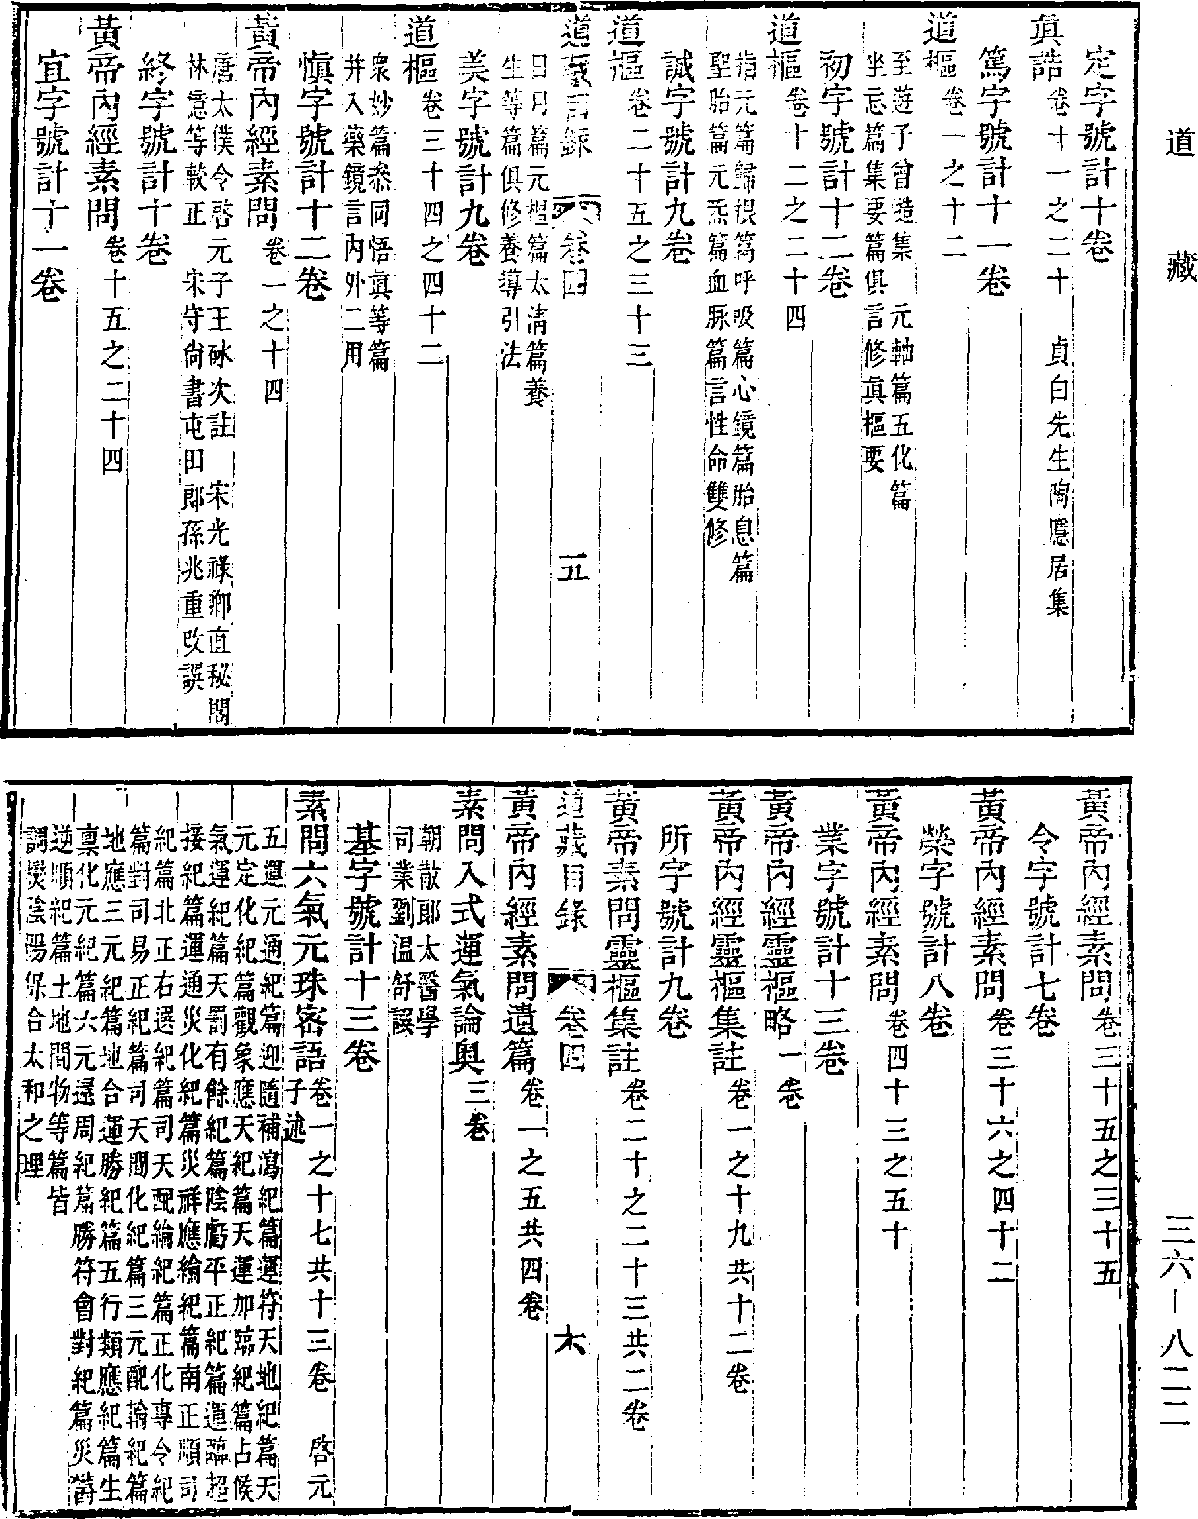 道藏
定字號計十卷
真誥卷十一之二十　貞白先生陶隱居集
篤字號計十一卷
道樞卷一之十二
至遊子曾慥集　元軸篇五化篇
坐忘篇集要篇俱言修真樞要
初字號計十二卷
道樞卷十二之二十四
指元篇歸根篇呼吸篇心鏡篇胎息篇
聖胎篇元炁篇血脉篇言性命雙修
誠字號計九卷
道樞卷二十五之三十三
道藏目錄　卷四　五
日月篇元樞篇太清篇養
生等篇俱修養導引法
美字號計九卷
道樞卷三十四之四十二
衆妙篇叅同悟真等篇
并入藥鏡言內外二用
愼字號計十二卷
黃帝內經素問卷一之十四
唐太僕令啓元子王砅次註　宋光祿卿直秘閣
林億等較正　宋守尚書屯田郎孫兆重改誤
終字號計十卷
黃帝內經素問卷十五之二十四
宜字號計十一卷
黃帝內經素問卷三十五之三十五
令字號計七卷
黃帝內經素問卷三十六之四十二
榮字號計八卷
黃帝內經素問卷四十三之五十
業字號計十三卷
黃帝內經靈樞略一卷
黃帝內經靈樞集註卷一之十九共十二卷
所字號計九卷
黃帝素問靈樞集註卷二十之二十三共二卷
道藏目錄　卷四　六
黃帝內經素問遺篇卷一之五共四卷
素問入式運氣論奧三卷
朝散郎太醫學
司業劉溫舒誤
基字號計十三卷
素問六氣元珠密語卷一之十七共十三卷　啓元
子述
五運元通紀篇迎隨補瀉紀篇運符天地紀篇天
元定化紀篇觀象應天紀篇天運加臨紀篇占候
氣運紀篇天罰有餘紀篇陰虧平正紀篇運臨超
接紀篇運通災化紀篇災祥應綸紀篇南正順司
紀篇北正右遷紀篇司天配綸紀篇正化專令紀
篇對司易正紀篇司天間化紀篇三元配輪紀篇
地應三元紀篇地合運勝紀篇五行類應紀篇生
稟化元紀篇六元還周紀篇勝符會對紀篇災欝
逆順紀篇土地間物等篇皆
調爕陰陽保合太和之理
三六—八二二